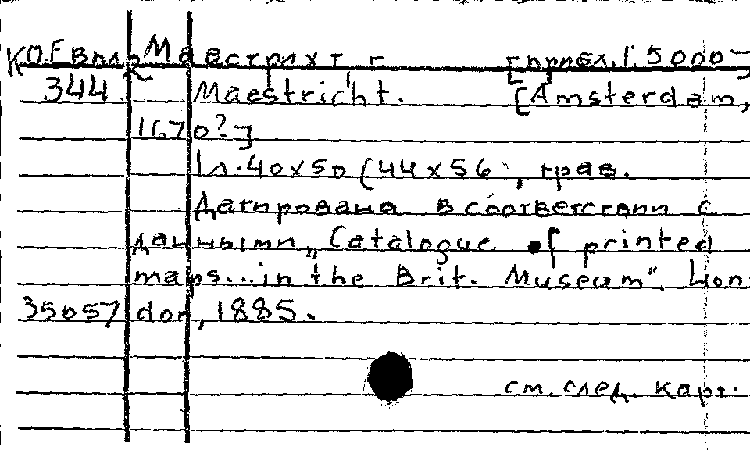 К0.Евр/2 Маастрихт, г. [прибл.1:5000]
344 Maestricht. [Amsterdam,
1670?]
1л. 40x50 (44x56), грав.
Датирована в соответствии с
данными „Catalogue of printed
maps...in the Brit. Museum". Lon-
35057 don, 1885.
см. след. карт.